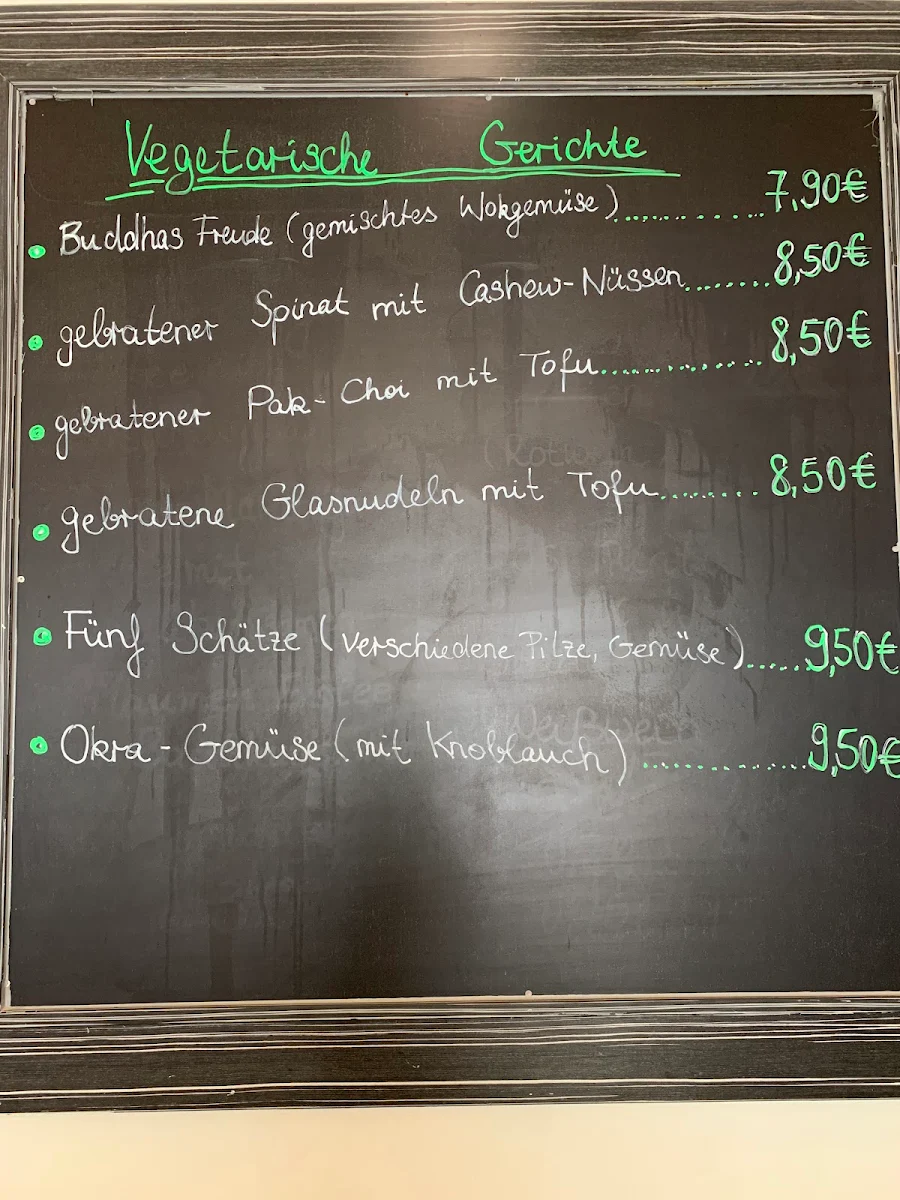 Vegetarische Gerichte
Buddhas Freude (gemischtes Wokgemüse)............7,90€
gebratener Spinat mit Cashew-Nüssen........8,50€
gebratener Pak-Choi mit Tofu...............8,50€
gebratene Glasnudeln mit Tofu.........8,50€
Fünf Schätze (verschiedene Pilze, Gemüse).....9,50€
Okra-Gemüse (mit Knoblauch)..............9,50€